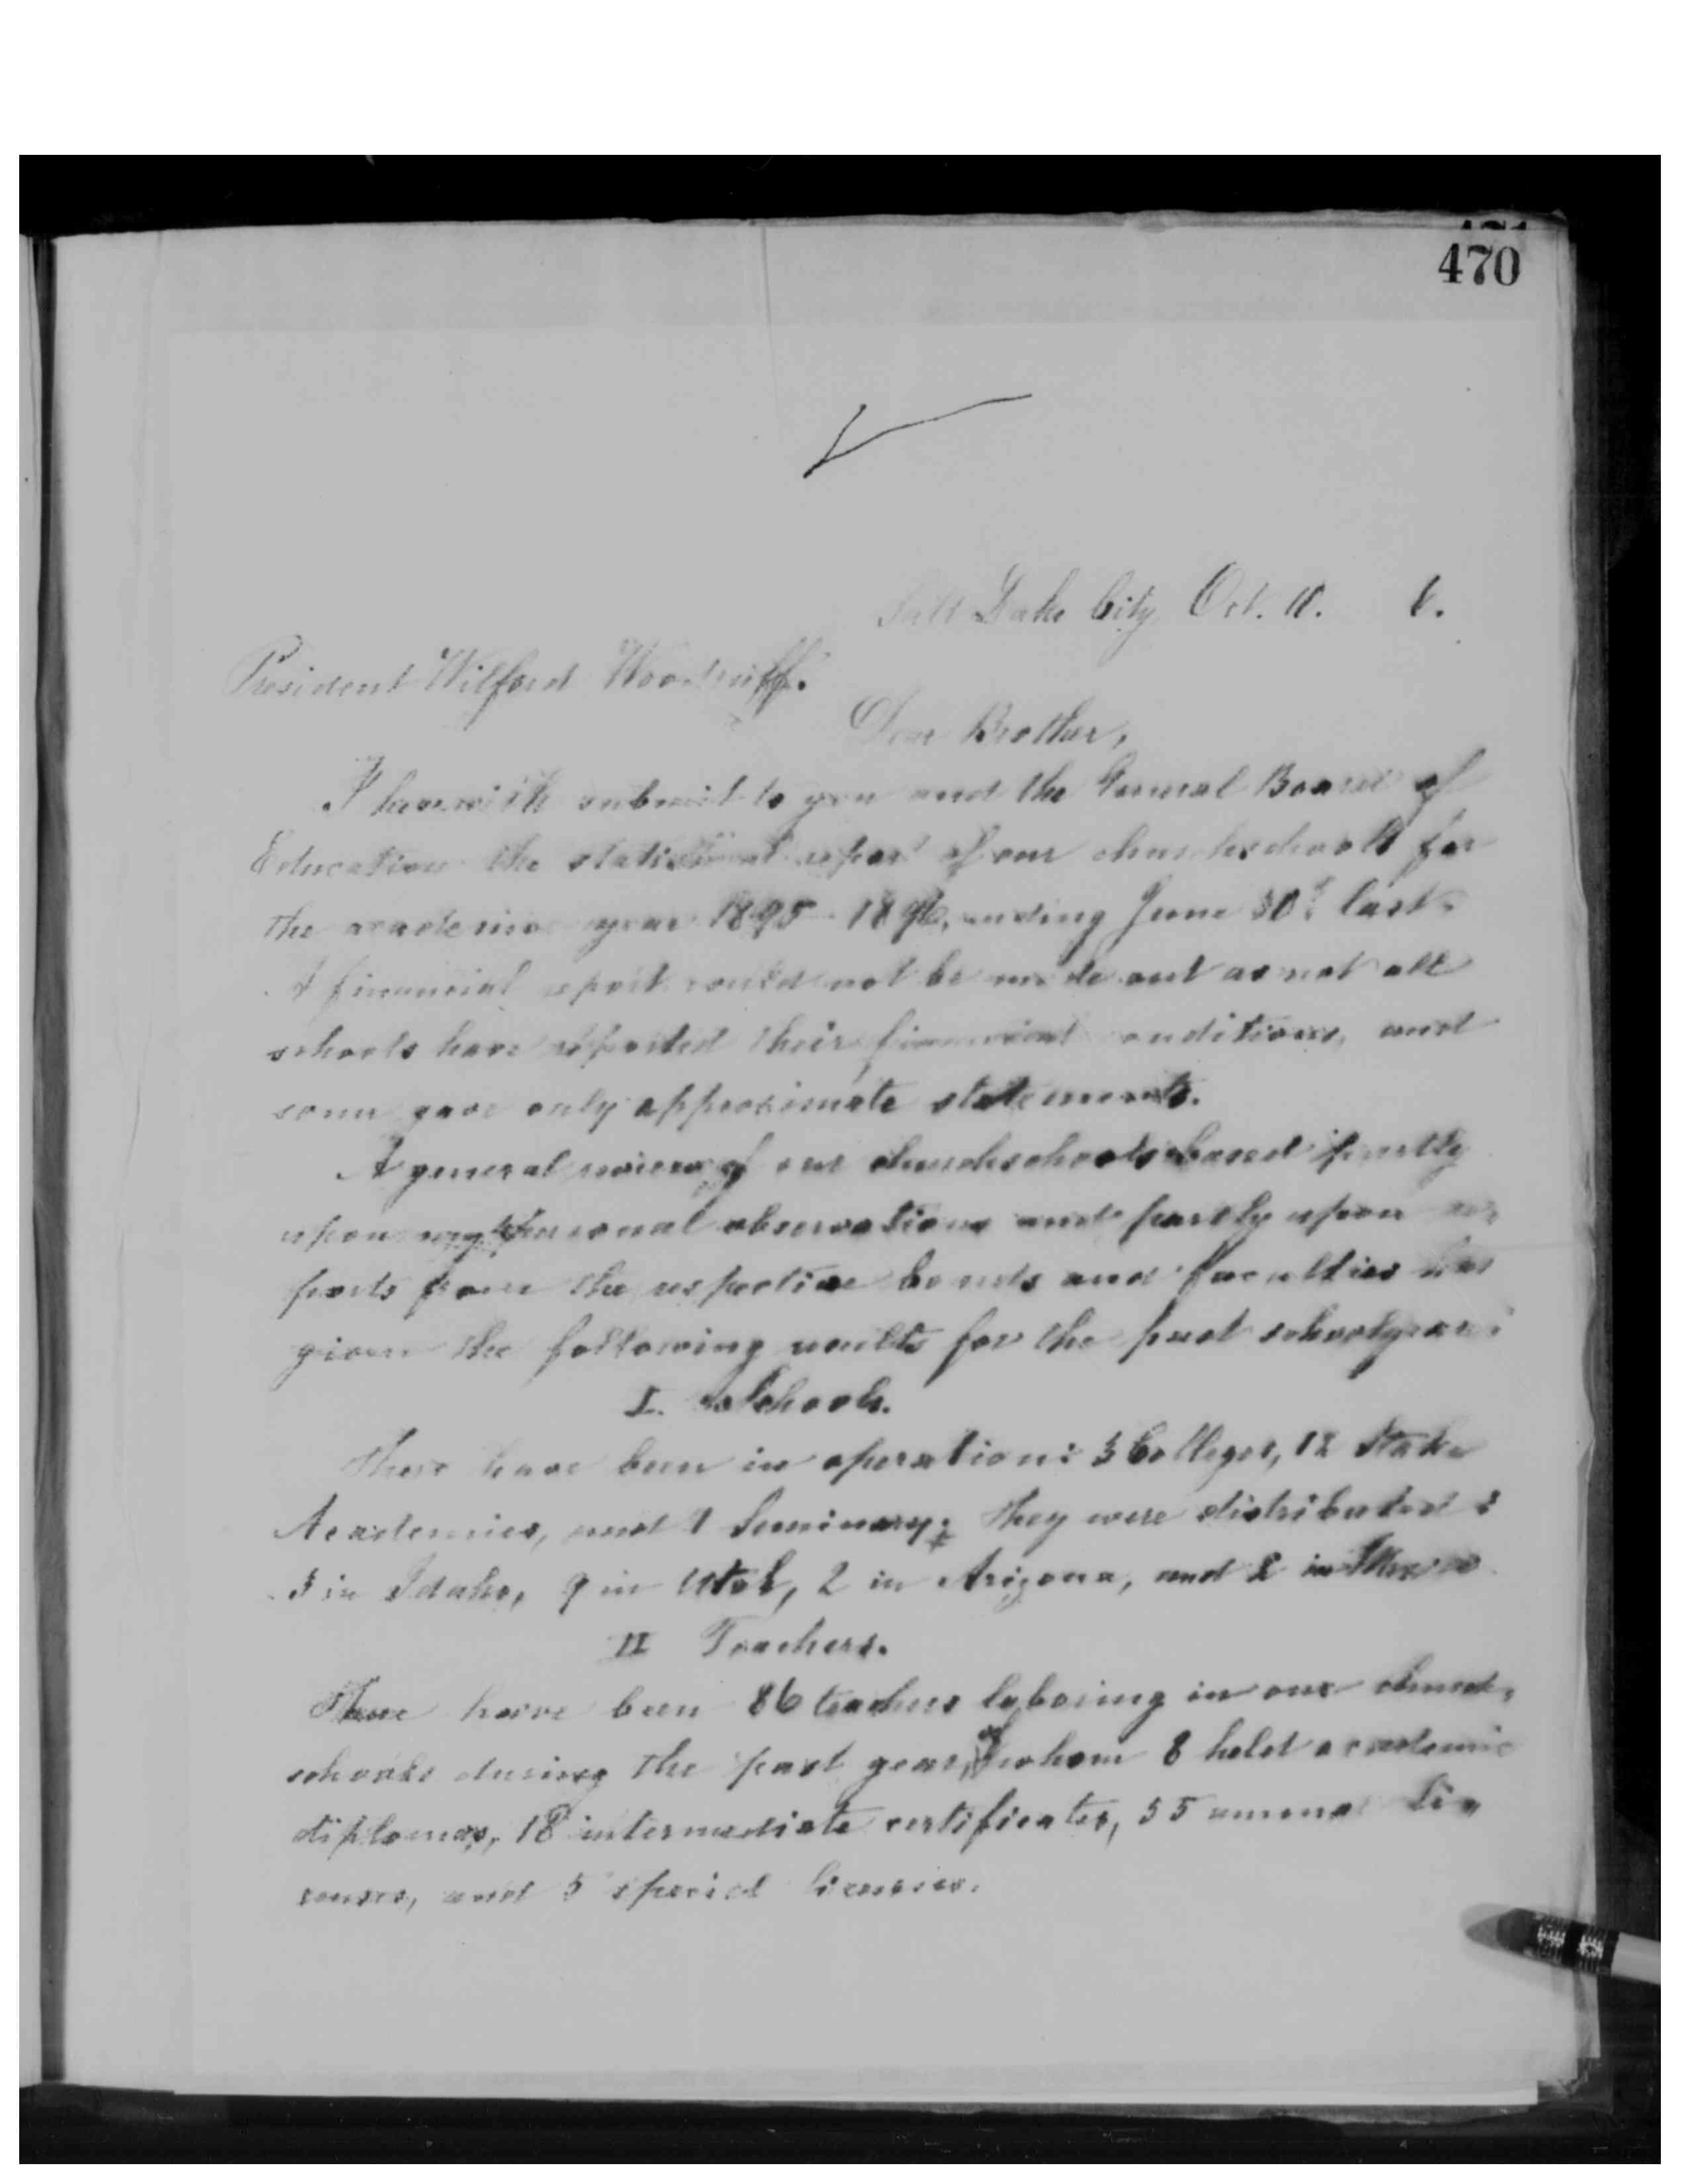 470
Salt Lake City Oct. 6.
President Wilford Woodruff.
Dear Brother,
I herewith submit to you and the General Board of
Education the statistical report of our churchschools for
the academic year 1895-1896, ending June 30th last.
A financial report could not be made out as not all
schools have reported their financial conditions, and
some gave only approximate statements.
A general review of our churchschools based partly
upon my personal observations and partly upon re-
ports from the respective boards and faculties has
given the following results for the past schoolyear:
I. Schools.
There have been in operation: 3 Colleges, 12 Stake
Academies, and 1 Seminary; They were distributed:
3 in Idaho, 9 in Utah, 2 in Arizona, and 2 in Mexico
II Teachers.
There have been 86 teachers laboring in our church-
schools during the past year, of whom 8 held academic
diplomas, 18 intermediate certificates, 55 annual li-
censes, and 5 special licenses.